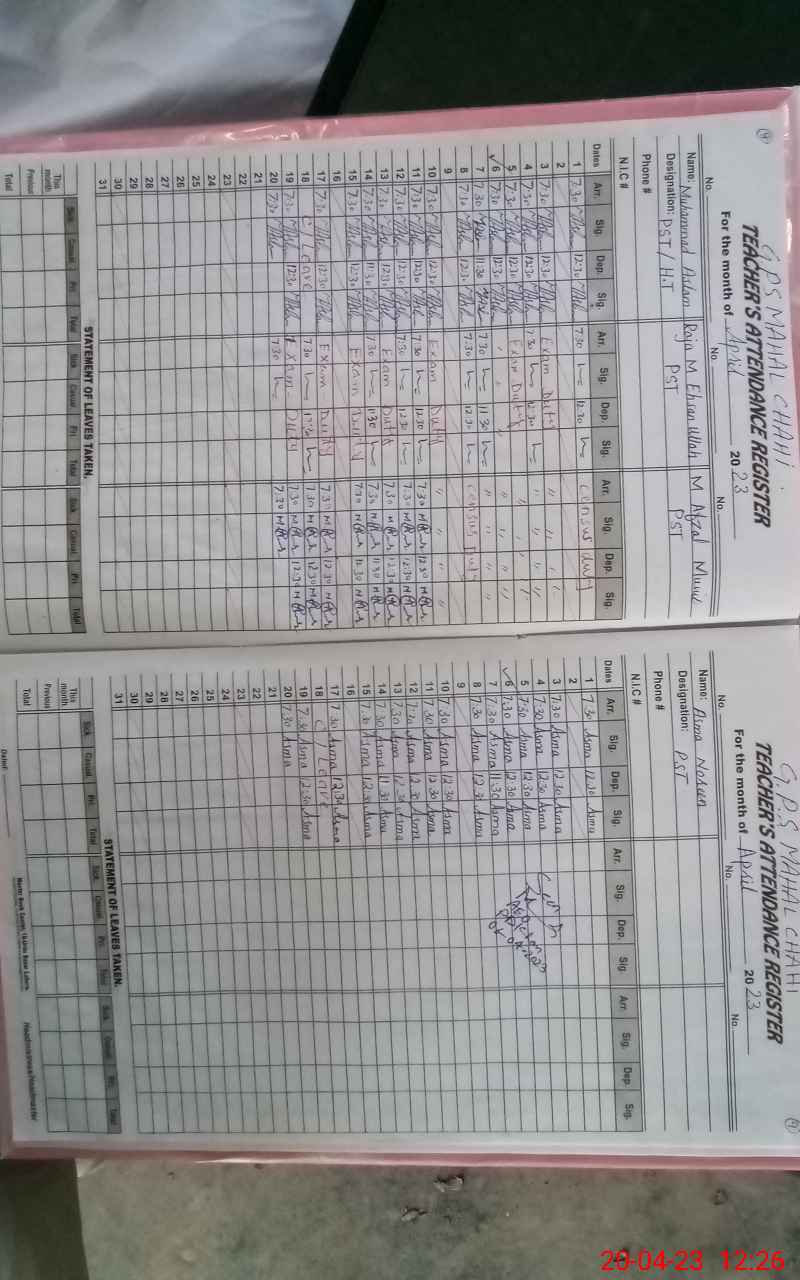 G.P.S MAHAL CHAHI
TEACHER'S ATTENDANCE REGISTER
For the month of April 2023
No. No. No.
Name: Muhammad Aslam Raja M Ehsan Ullah M Afzal
Designation: PST/H.T PST PST
Phone #
N.I.C #
Dates Arr. Sig. Dep. Sig. Arr. Sig. Dep. Sig. Arr. Sig. Dep. Sig.
1 7:30 12:30 7:30 12:30 census duty
2
3 7:30 12:30 Exam Duty " "
4 7:30 12:30 7:30 12:30 " "
5 7:30 12:30 Exam Duty " "
6 7:30 12:30 " "
7 7:30 11:30 7:30 11:30 " " " "
8 7:30 12:30 7:30 12:30 census Duty
9
10 7:30 12:30 Exam Duty " " "
11 7:30 12:30 7:30 12:30 7:30 12:30
12 7:30 12:30 7:30 12:30 7:30 12:30
13 7:30 12:30 Exam Duty 7:30 12:30
14 7:30 11:30 7:30 11:30 7:30 11:30
15 7:30 12:30 Exam Duty 7:30 12:30
16
17 7:30 12:30 Exam Duty 7:30 12:30
18 C/Leave 7:30 12:30 7:30 12:30
19 7:30 12:30 Exam Duty 7:30 12:30
20 7:30 7:30 7:30
21
22
23
24
25
26
27
28
29
30
31
STATEMENT OF LEAVES TAKEN.
Sick Casual Pri. Total Sick Casual Pri. Total Sick Casual Pri. Total
This month
Previous
Total
G.P.S MAHAL CHAHI
TEACHER'S ATTENDANCE REGISTER
For the month of April 2023
No. No. No.
Name: Asma Noreen
Designation: PST
Phone #
N.I.C #
Dates Arr. Sig. Dep. Sig. Arr. Sig. Dep. Sig. Arr. Sig. Dep. Sig.
1 7:30 Asma 12:30 Asma
2
3 7:30 Asma 12:30 Asma
4 7:30 Asma 12:30 Asma
5 7:30 Asma 12:30 Asma
6 7:30 Asma 12:30 Asma
7 7:30 Asma 11:30 Asma
8 7:30 Asma 12:30 Asma
9
10 7:30 Asma 12:30 Asma
11 7:30 Asma 12:30 Asma
12 7:30 Asma 12:30 Asma
13 7:30 Asma 12:30 Asma
14 7:30 Asma 11:30 Asma
15 7:30 Asma 12:30 Asma
16
17 7:30 Asma 12:30 Asma
18 C/Leave
19 7:30 Asma 12:30 Asma
20 7:30 Asma
21
22
23
24
25
26
27
28
29
30
31
STATEMENT OF LEAVES TAKEN.
Sick Casual Pri. Total Sick Casual Pri. Total Sick Casual Pri. Total
This month
Previous
Total
Dated:
Headmistress/Headmaster
20-04-23 12:26